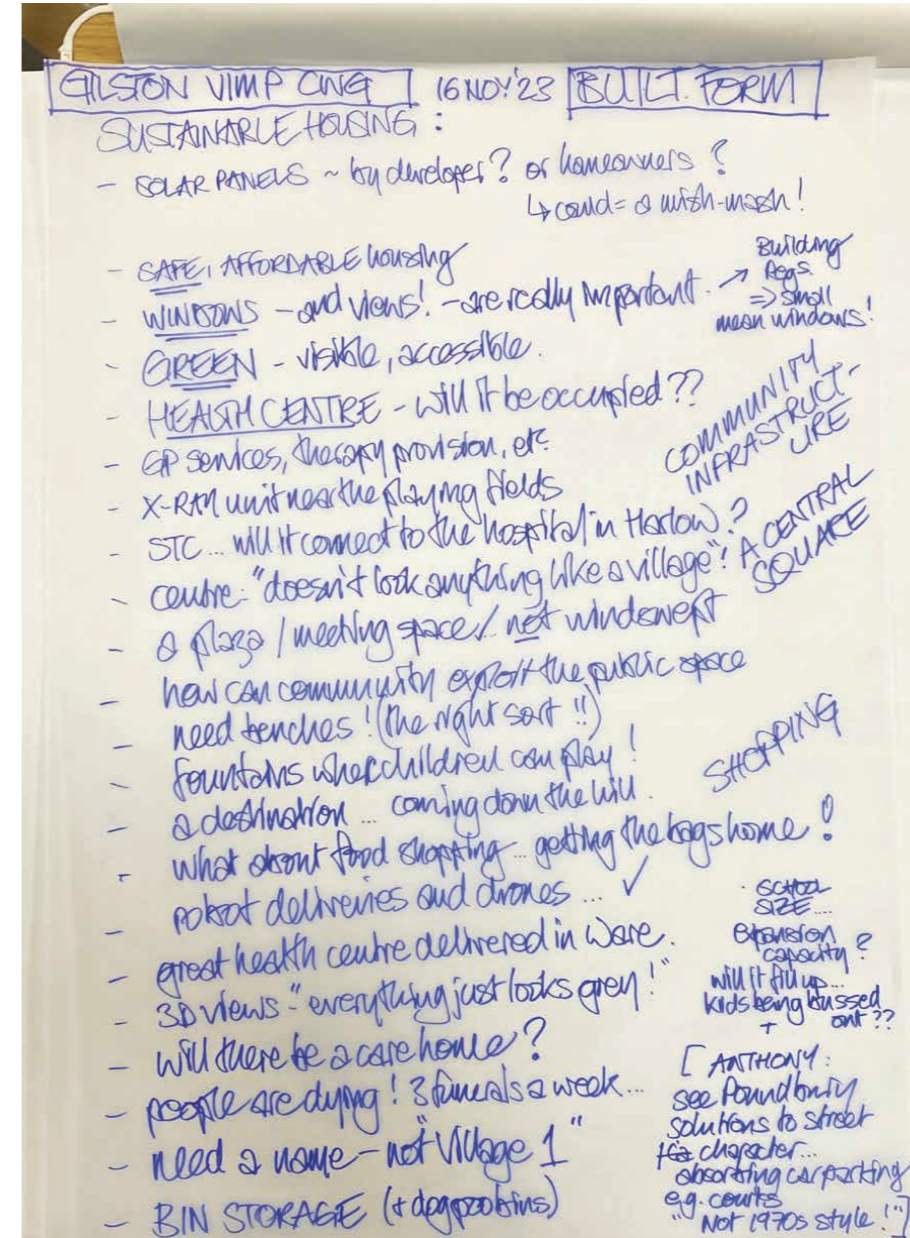 GILSTON V1MP CWG 16 NOV '23 BUILT FORM
SUSTAINABLE HOUSING :
- SOLAR PANELS ~ by developer? or homeowners?
↳ could = a mish-mash!
- SAFE, AFFORDABLE housing
- WINDOWS - and views! - are really important. → Building
Regs.
=> small
mean windows!
- GREEN - visible, accessible.
- HEALTH CENTRE - will it be occupied??
COMMUNITY
INFRASTRUCT-
URE
- GP services, therapy provision, etc.
- X-RAY unit near the playing fields
- STC ... will it connect to the hospital in Harlow?
- centre: "doesn't look anything like a village"!
A CENTRAL
SQUARE
- a plaza / meeting space / not windswept
- how can community exploit the public space
- need benches! (the right sort!!)
- fountains where children can play!
- a destination ... coming down the hill.
SHOPPING
- what about food shopping ... getting the bags home!
robot deliveries and drones ... ✓
- great health centre delivered in Ware.
- 3D views - "everything just looks grey!"
SCHOOL
SIZE ....
expansion
capacity?
will it fill up ...
kids being bussed
+ out??
- will there be a care home?
- people are dying! 3 funerals a week ...
- need a name - not "Village 1"
- BIN STORAGE (+ dog poo bins)
[ANTHONY:
see Poundbury
solutions to street
character ...
absorbing car parking
e.g. courts
"Not 1970s style!"]